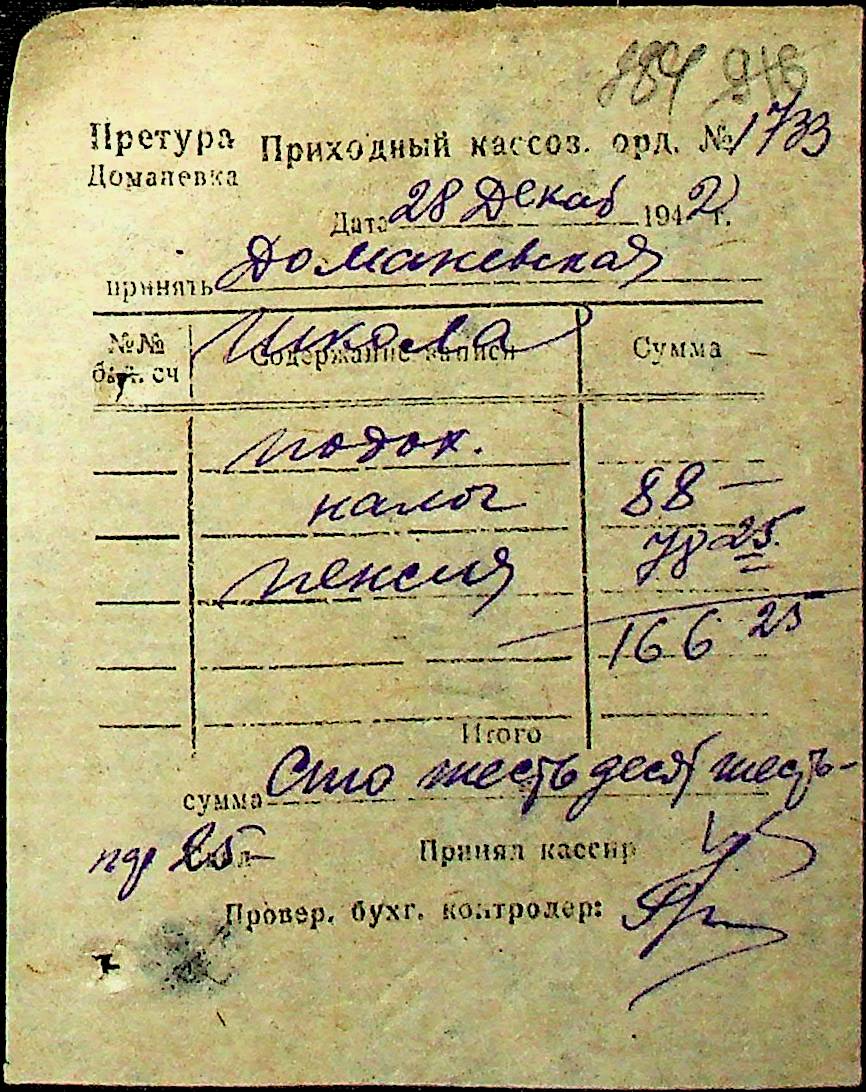 884 918
Претура Приходный кассов. орд. № 1733
Доманевка
Дата 28 Декаб 1942 г.
принять Доманевская
Школа
№№ Содержание записи Сумма
бух. сч
подох.
налог 88 —
пенсия 78 25
166 25
Итого
сумма Сто шестьдесят шесть-
25
Принял кассир
Провер. бухг. контролер: